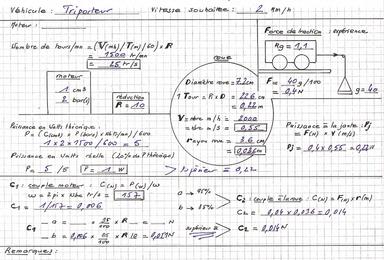 Véhicule : Triporteur Vitesse souhaitée : 2 Km/h
Moteur :
Force de traction : expérience
Nombre de tours/mn = (V(m3)/T(m)/60) × R
= 1500 tr/mn
= 25 tr/s
roue
Rg = 1,1
moteur
1 cm3
2 bar(s)
réduction
R = 10
Diamètre roue = 7.2 cm
1 Tour = π × D = 22.6 cm
= 0,22 m
V = nbre m/h = 2000
= nbre m/s = 0,55
rayon roue = 3.6 cm
= 0,036 m
F = 40 g/100
= 0,4 N
g = 40
Puissance en Watts théorique :
P = C(cm3) × P(bar) × Nb tr/mn / 600
1 × 2 × 1500 / 600 = 5
Puissance à la jante : Pj
= F(N) × V (m/s)
Pj = 0,4 × 0,55 = 0,22 W
Puissance en Watts réelle (20% de P théorique)
P = 5 / 5 P = 1 W
supérieur à 0,22
C1 : couple moteur : C(N) = P(W)/w
w = 2 pi × Nbre tr/s = 157
C1 = 1/157 = 0,006
a → 95%
b → 85%
C2 : couple à la roue : C(N) = F(N) × r(m)
C2 = 0,04 × 0,036 = 0,014
C1
a = × 95/100 × R = N
b = 0,006 × 85/100 × R 10 = 0,051 N
supérieur à
C2 = 0,014 N
Remarques :